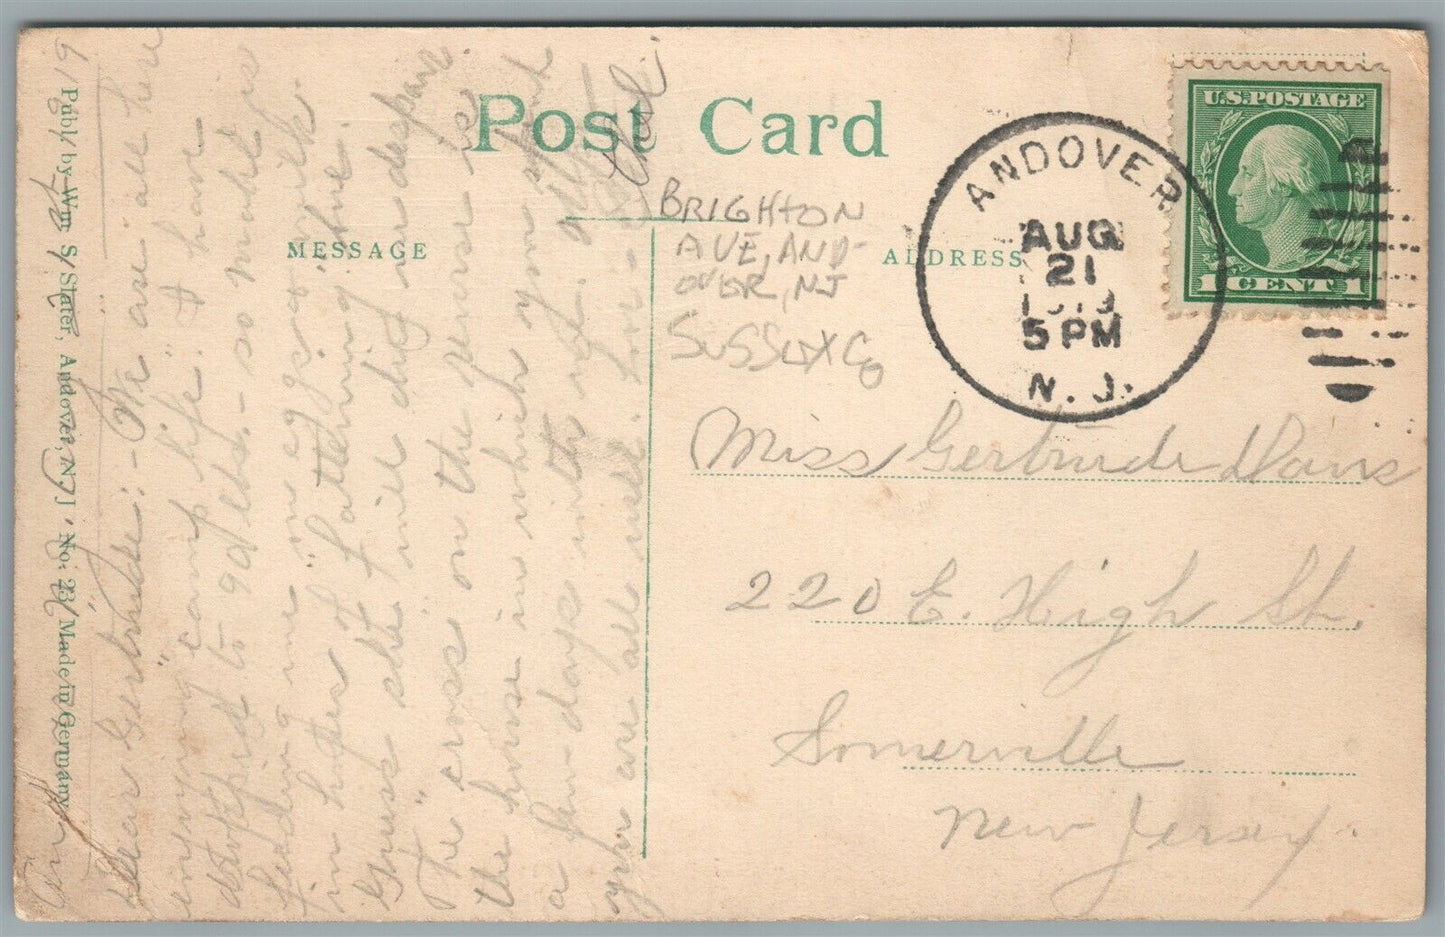 Post Card
MESSAGE
ADDRESS
U.S. POSTAGE
1 CENT 1
ANDOVER
AUG
21
5 PM
N. J.
BRIGHTON
AVE, AND-
OVER, NJ
SUSSEX CO
Miss Gertrude Davis
220 E. High St.
Somerville
New Jersey.
Publ. by Wm S. Slater, Andover, N. J. No. 23 Made in Germany
Dear Gertrude:- We are all here
enjoying "camp life." I have
dropped to 90 lbs. - so Mabel is
feeding me "on eggs & milk
in hopes of "fattening" me.
Guess she will die in despair
The "cross" on the reverse is
the house in which you spent
a few days with us. Hope
you are all well. Love to